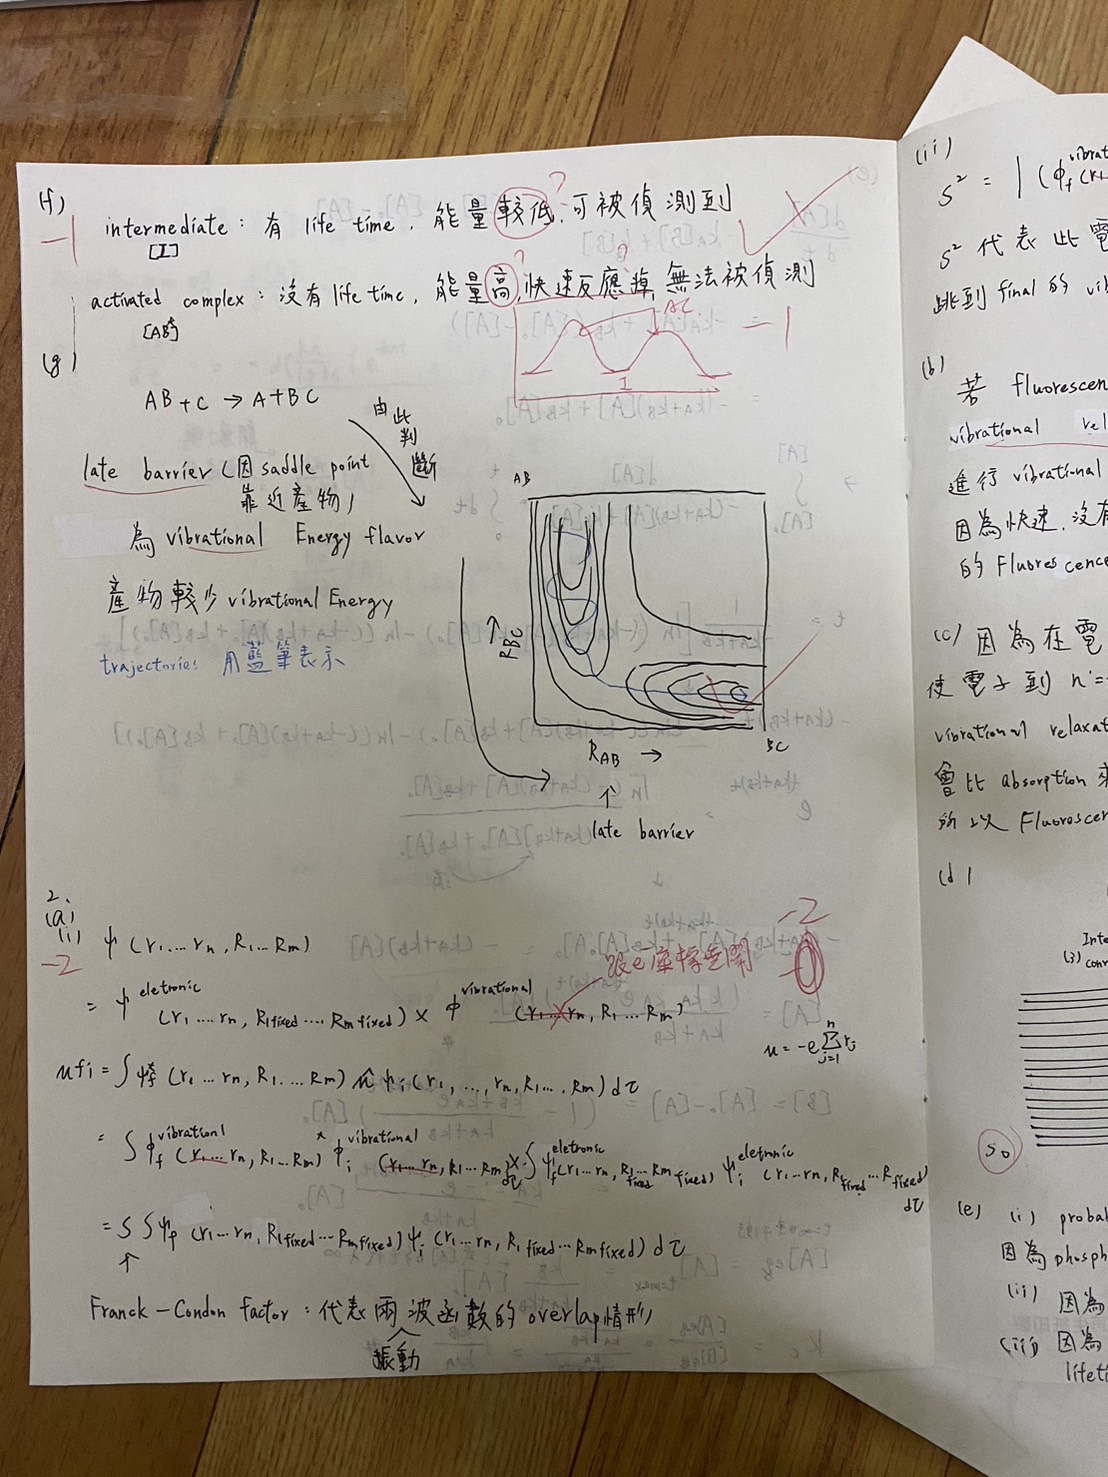 (f)
-1
intermediate: 有 life time, 能量較低, 可被偵測到
[I]
activated complex: 沒有 life time, 能量高, 快速反應掉, 無法被偵測
[AB‡]
AC
-1
I
(g)
AB+C → A+BC
由此判斷
late barrier (因 saddle point
靠近產物)
為 vibrational Energy flavor
產物較少 vibrational Energy
trajectories 用藍筆表示
AB
RBC →
RAB →
BC
↑
late barrier
2.
(a)
(i) ψ (r1....rn, R1...Rm)
-2
-2
跟e座標無關
= ψ eletronic (r1....rn, R1fixed....Rm fixed) × ϕ vibrational (r1...rn, R1...Rm)
u = -e Σ n j=1 rj
ufi = ∫ ψf* (r1...rn, R1...Rm) û ψi (r1,...,rn, R1...Rm) dτ
= ∫ ϕf vibrationl (r1...rn, R1...Rm) * ϕi vibrational (r1...rn, R1...Rm) dτ × ∫ ψf eletronic (r1...rn, R1 fixed...Rm fixed) ψi eletronic (r1...rn, R fixed...R fixed) dτ
= S ∫ ψf (r1...rn, R1fixed...Rmfixed) ψi (r1...rn, R1 fixed...Rmfixed) dτ
↑
Franck-Condon factor: 代表兩振動波函數的 overlap 情形
(ii)
S² = | (ϕf vibrat
S² 代表此電
跳到 final 的 vib
(b)
若 fluorescen
vibrational rel
進行 vibrational
因為快速, 沒有
的 Fluorescence
(c) 因為在電
使電子到 n'=
vibrational relaxat
會比 absorption 來
所以 Fluorescen
(d)
Inte
(3) conv
S0
(e) (i) probab
因為 phosph
(ii) 因為
(iii) 因為
lifeti